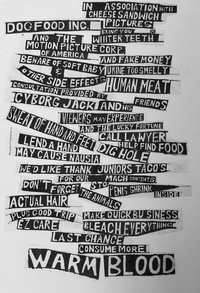 IN ASSOCIATION WITH
CHEESE SANDWICH
PICTURES
DOG FOOD INC.
BRING YOU
AND THE WHITER TEETH
MOTION PICTURE CORP
OF AMERICA
AND FAKE MONEY
BEWARE OF SOFT BABY
URINE TOO SMELLY
& OTHER SIDE EFFECTS
HUMAN MEAT
CONSULTATION PROVIDED BY
CYBORG JACK AND HIS FRIENDS
VIEWERS MAY EXPERIENCE
SWEAT OF HAND AND FEET
AND THE LUCKY FORTUNE
CALL LAWYER
LEND A HAND
HELP FIND FOOD
DIG HOLE
MAY CAUSE NAUSIA
WE'D LIKE THANK JUNIORS TACOS
FOR OUR MACH
DON'T FORGET STO
PENIS SHRINK
INSIDE
THE ANIMALS
ACTUAL HAIR
PLUS GOOD TRIP
MAKE QUICK BUSINESS
EZ CARE
BLEACH EVERYTHING
LAST CHANCE
CONSUME MORE
WARM BLOOD